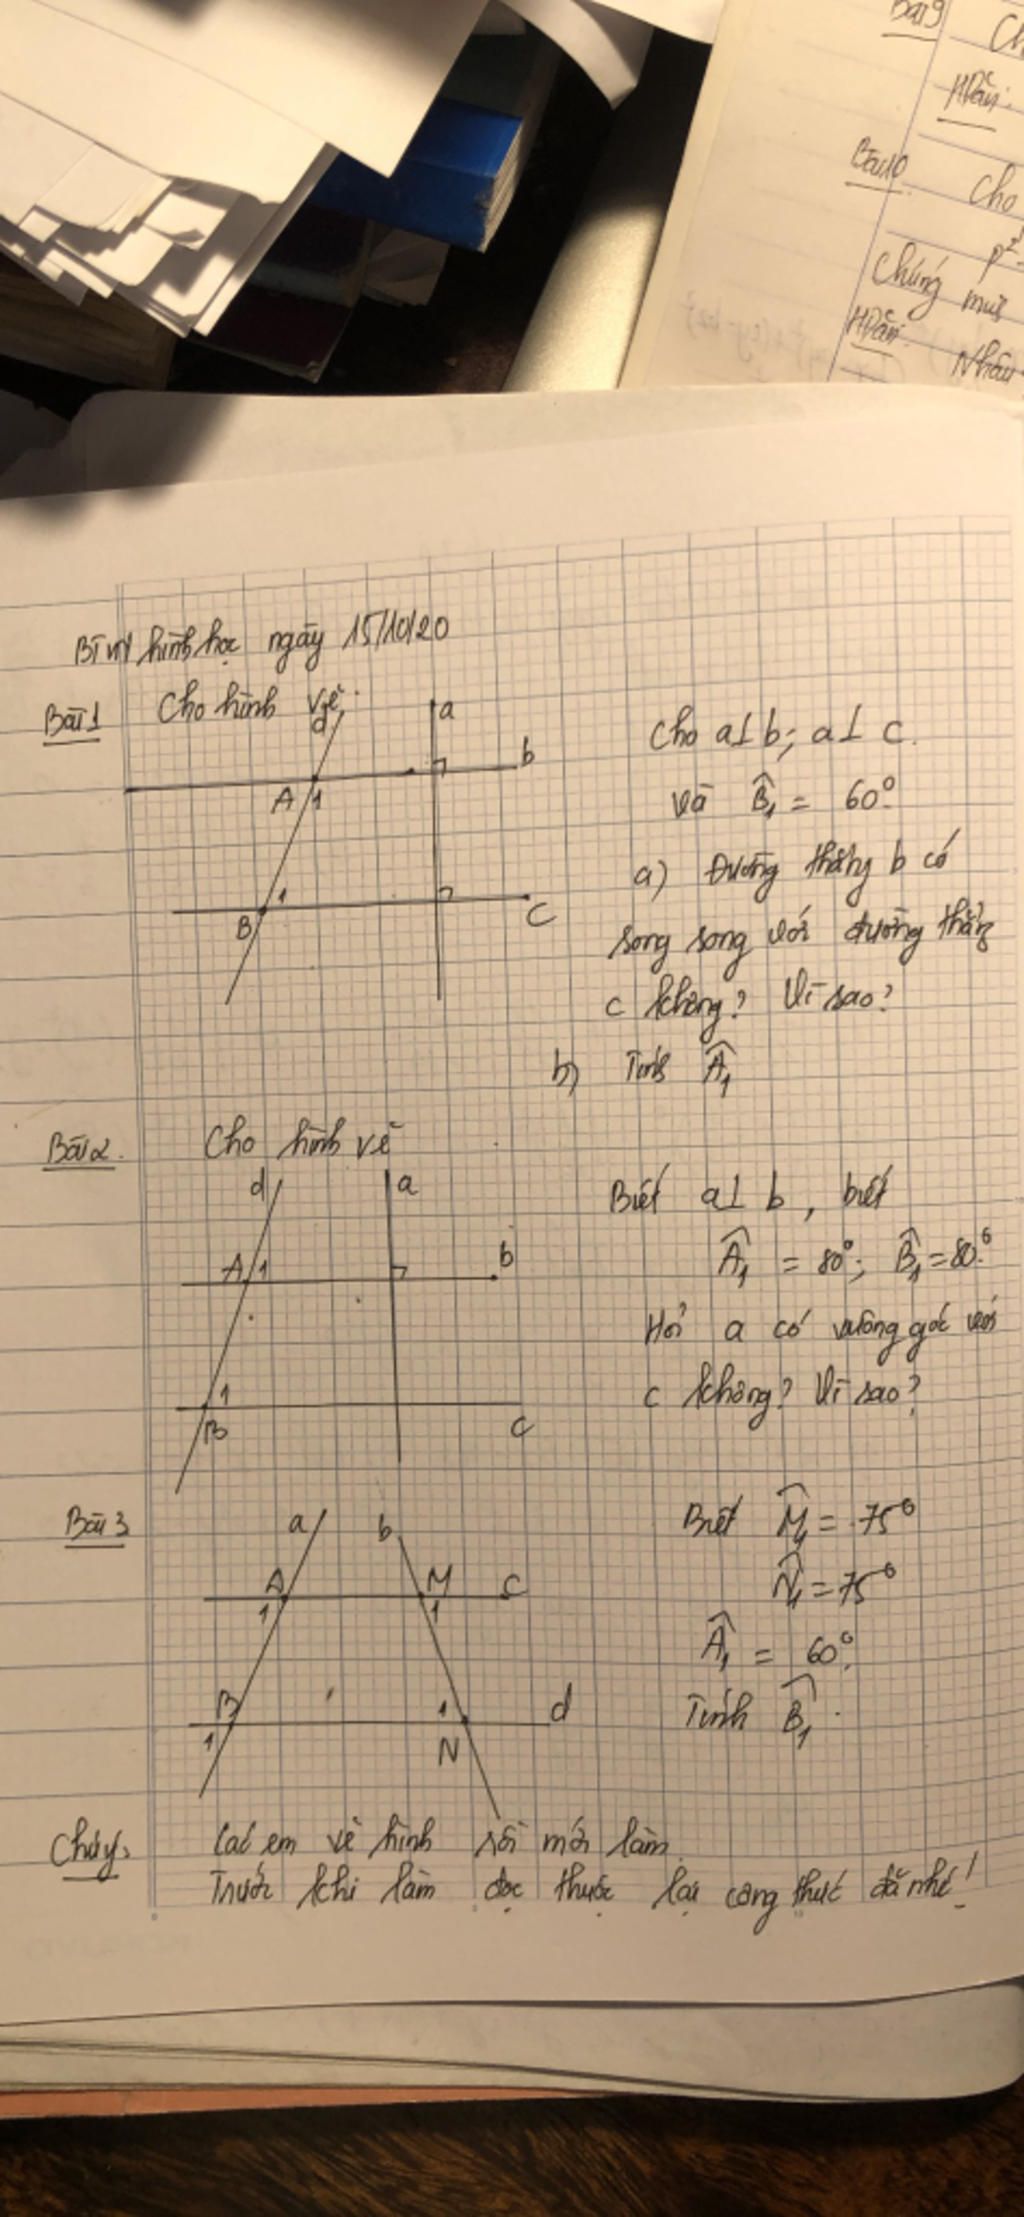 Bài 9
Ch
HDẫn:
Bài 10
Cho
Chứng min
HDẫn:
Nhân
BTVN hình học ngày 15/10/20
Bài 1 Cho hình vẽ:
d a
b
A 1
B 1
C
Cho a⊥b; a⊥ c.
và B̂₁ = 60°.
a) Đường thẳng b có
song song với đường thẳng
c không? Vì sao?
b) Tính Â₁
Bài 2. Cho hình vẽ
d a
A 1 b
B 1
C
Biết a⊥ b, biết
Â₁ = 80°; B̂₁ = 80°
Hỏi a có vuông góc với
c không? Vì sao?
Bài 3
a b
A M C
1 1
B 1 d
1 N
Biết M̂₁ = 75°
N̂₁ = 75°
Â₁ = 60°.
Tính B̂₁.
Chú ý: Các em vẽ hình rồi mới làm.
Trước khi làm đọc thuộc lại công thức đã nhé!